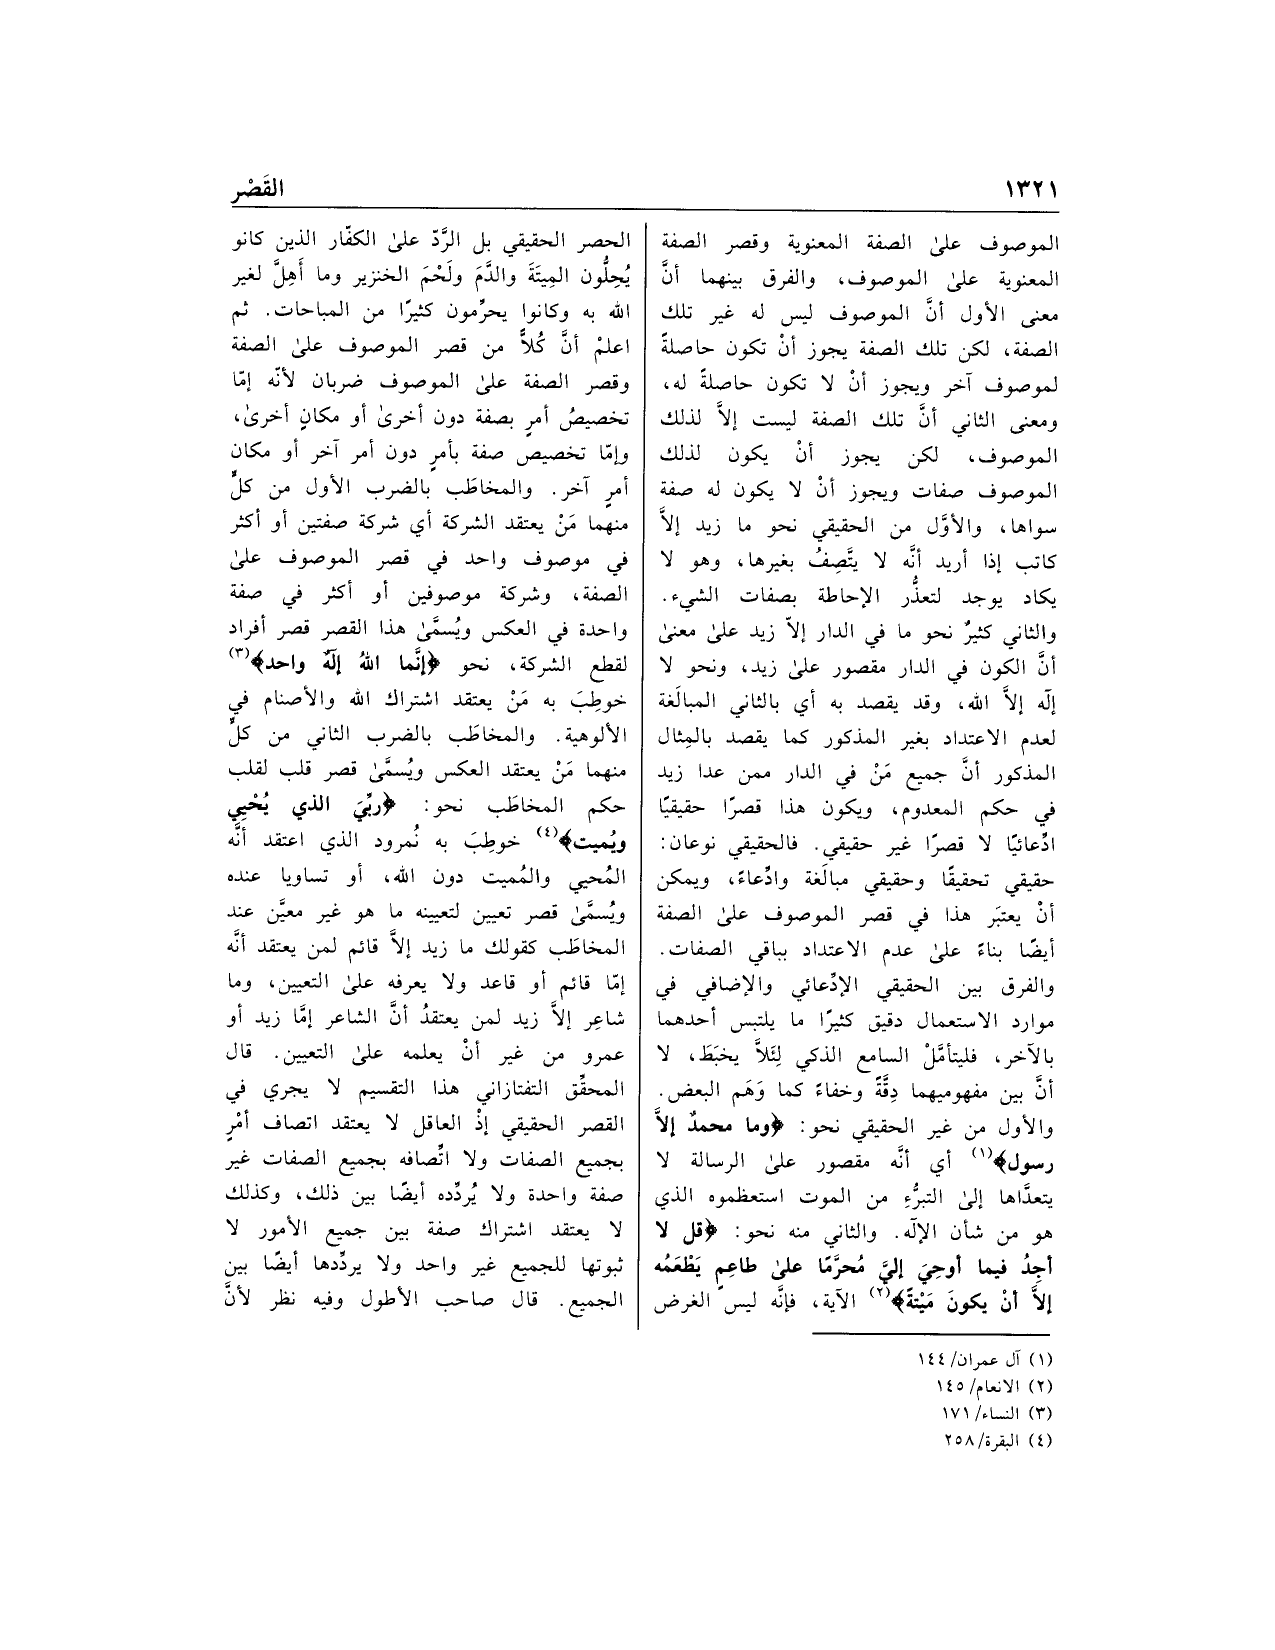 ١٣٢١
القَصْر
الموصوف علىٰ الصفة المعنوية وقصر الصفة
المعنوية علىٰ الموصوف، والفرق بينهما أنَّ
معنى الأول أنَّ الموصوف ليس له غير تلك
الصفة، لكن تلك الصفة يجوز أنْ تكون حاصلةً
لموصوف آخر ويجوز أنْ لا تكون حاصلةً له،
ومعنى الثاني أنَّ تلك الصفة ليست إلاَّ لذلك
الموصوف، لكن يجوز أنْ يكون لذلك
الموصوف صفات ويجوز أنْ لا يكون له صفة
سواها، والأوَّل من الحقيقي نحو ما زيد إلاَّ
كاتب إذا أريد أنَّه لا يتَّصِفُ بغيرها، وهو لا
يكاد يوجد لتعذُّر الإحاطة بصفات الشيء.
والثاني كثيرٌ نحو ما في الدار إلاّ زيد علىٰ معنىٰ
أنَّ الكون في الدار مقصور علىٰ زيد، ونحو لا
إلٰه إلاَّ الله، وقد يقصد به أي بالثاني المبالَغة
لعدم الاعتداد بغير المذكور كما يقصد بالمِثال
المذكور أنَّ جميع مَنْ في الدار ممن عدا زيد
في حكم المعدوم، ويكون هذا قصرًا حقيقيًا
ادِّعائيًا لا قصرًا غير حقيقي. فالحقيقي نوعان:
حقيقي تحقيقًا وحقيقي مبالَغة وادِّعاءً، ويمكن
أنْ يعتبَر هذا في قصر الموصوف علىٰ الصفة
أيضًا بناءً علىٰ عدم الاعتداد بباقي الصفات.
والفرق بين الحقيقي الإدِّعائي والإضافي في
موارد الاستعمال دقيق كثيرًا ما يلتبس أحدهما
بالآخر، فليتأمَّل السامع الذكي لِئَلاَّ يخبَطَ، لا
أنَّ بين مفهوميهما دِقَّةً وخفاءً كما وَهَم البعض.
والأول من غير الحقيقي نحو: ﴿وما محمدٌ إلاَّ
رسول﴾(١) أي أنَّه مقصور علىٰ الرسالة لا
يتعدَّاها إلىٰ التبرُّءِ من الموت استعظموه الذي
هو من شأن الإلٰه. والثاني منه نحو: ﴿قل لا
أجِدُ فيما أوحِيَ إليَّ مُحرَّمًا علىٰ طاعِمٍ يَطْعَمُه
إلاَّ أنْ يكونَ مَيْتةً﴾(٢) الآية، فإنَّه ليس الغرض
الحصر الحقيقي بل الرَّدّ علىٰ الكفّار الذين كانو
يُحِلُّون المِيتَةَ والدَّمَ ولَحْمَ الخنزير وما أَهِلَّ لغير
الله به وكانوا يحرِّمون كثيرًا من المباحات. ثم
اعلمْ أنَّ كُلاًّ من قصر الموصوف علىٰ الصفة
وقصر الصفة علىٰ الموصوف ضربان لأنّه إمّا
تخصيصُ أمرٍ بصفة دون أخرىٰ أو مكانٍ أخرىٰ،
وإمّا تخصيص صفة بأمرٍ دون أمر آخر أو مكان
أمرٍ آخر. والمخاطَب بالضرب الأول من كلٍّ
منهما مَنْ يعتقد الشركة أي شركة صفتين أو أكثر
في موصوف واحد في قصر الموصوف علىٰ
الصفة، وشركة موصوفين أو أكثر في صفة
واحدة في العكس ويُسمَّىٰ هذا القصر قصر أفراد
لقطع الشركة، نحو ﴿إنَّما اللهُ إلٰهٌ واحد﴾(٣)
خوطِبَ به مَنْ يعتقد اشتراك الله والأصنام في
الألوهية. والمخاطَب بالضرب الثاني من كلٍّ
منهما مَنْ يعتقد العكس ويُسمَّىٰ قصر قلب لقلب
حكم المخاطَب نحو: ﴿ربِّيَ الذي يُحْيِي
ويُميت﴾(٤) خوطِبَ به نُمرود الذي اعتقد أنَّه
المُحيي والمُميت دون الله، أو تساويا عنده
ويُسمَّىٰ قصر تعيين لتعيينه ما هو غير معيَّن عند
المخاطَب كقولك ما زيد إلاَّ قائم لمن يعتقد أنَّه
إمّا قائم أو قاعد ولا يعرفه علىٰ التعيين، وما
شاعِر إلاَّ زيد لمن يعتقدُ أنَّ الشاعر إمَّا زيد أو
عمرو من غير أنْ يعلمه علىٰ التعيين. قال
المحقِّق التفتازاني هذا التقسيم لا يجري في
القصر الحقيقي إذْ العاقل لا يعتقد اتصاف أمْرٍ
بجميع الصفات ولا اتِّصافه بجميع الصفات غير
صفة واحدة ولا يُردِّده أيضًا بين ذلك، وكذلك
لا يعتقد اشتراك صفة بين جميع الأمور لا
ثبوتها للجميع غير واحد ولا يردِّدها أيضًا بين
الجميع. قال صاحب الأطول وفيه نظر لأنَّ
(١) آل عمران/ ١٤٤
(٢) الانعام/ ١٤٥
(٣) النساء/ ١٧١
(٤) البقرة/ ٢٥٨